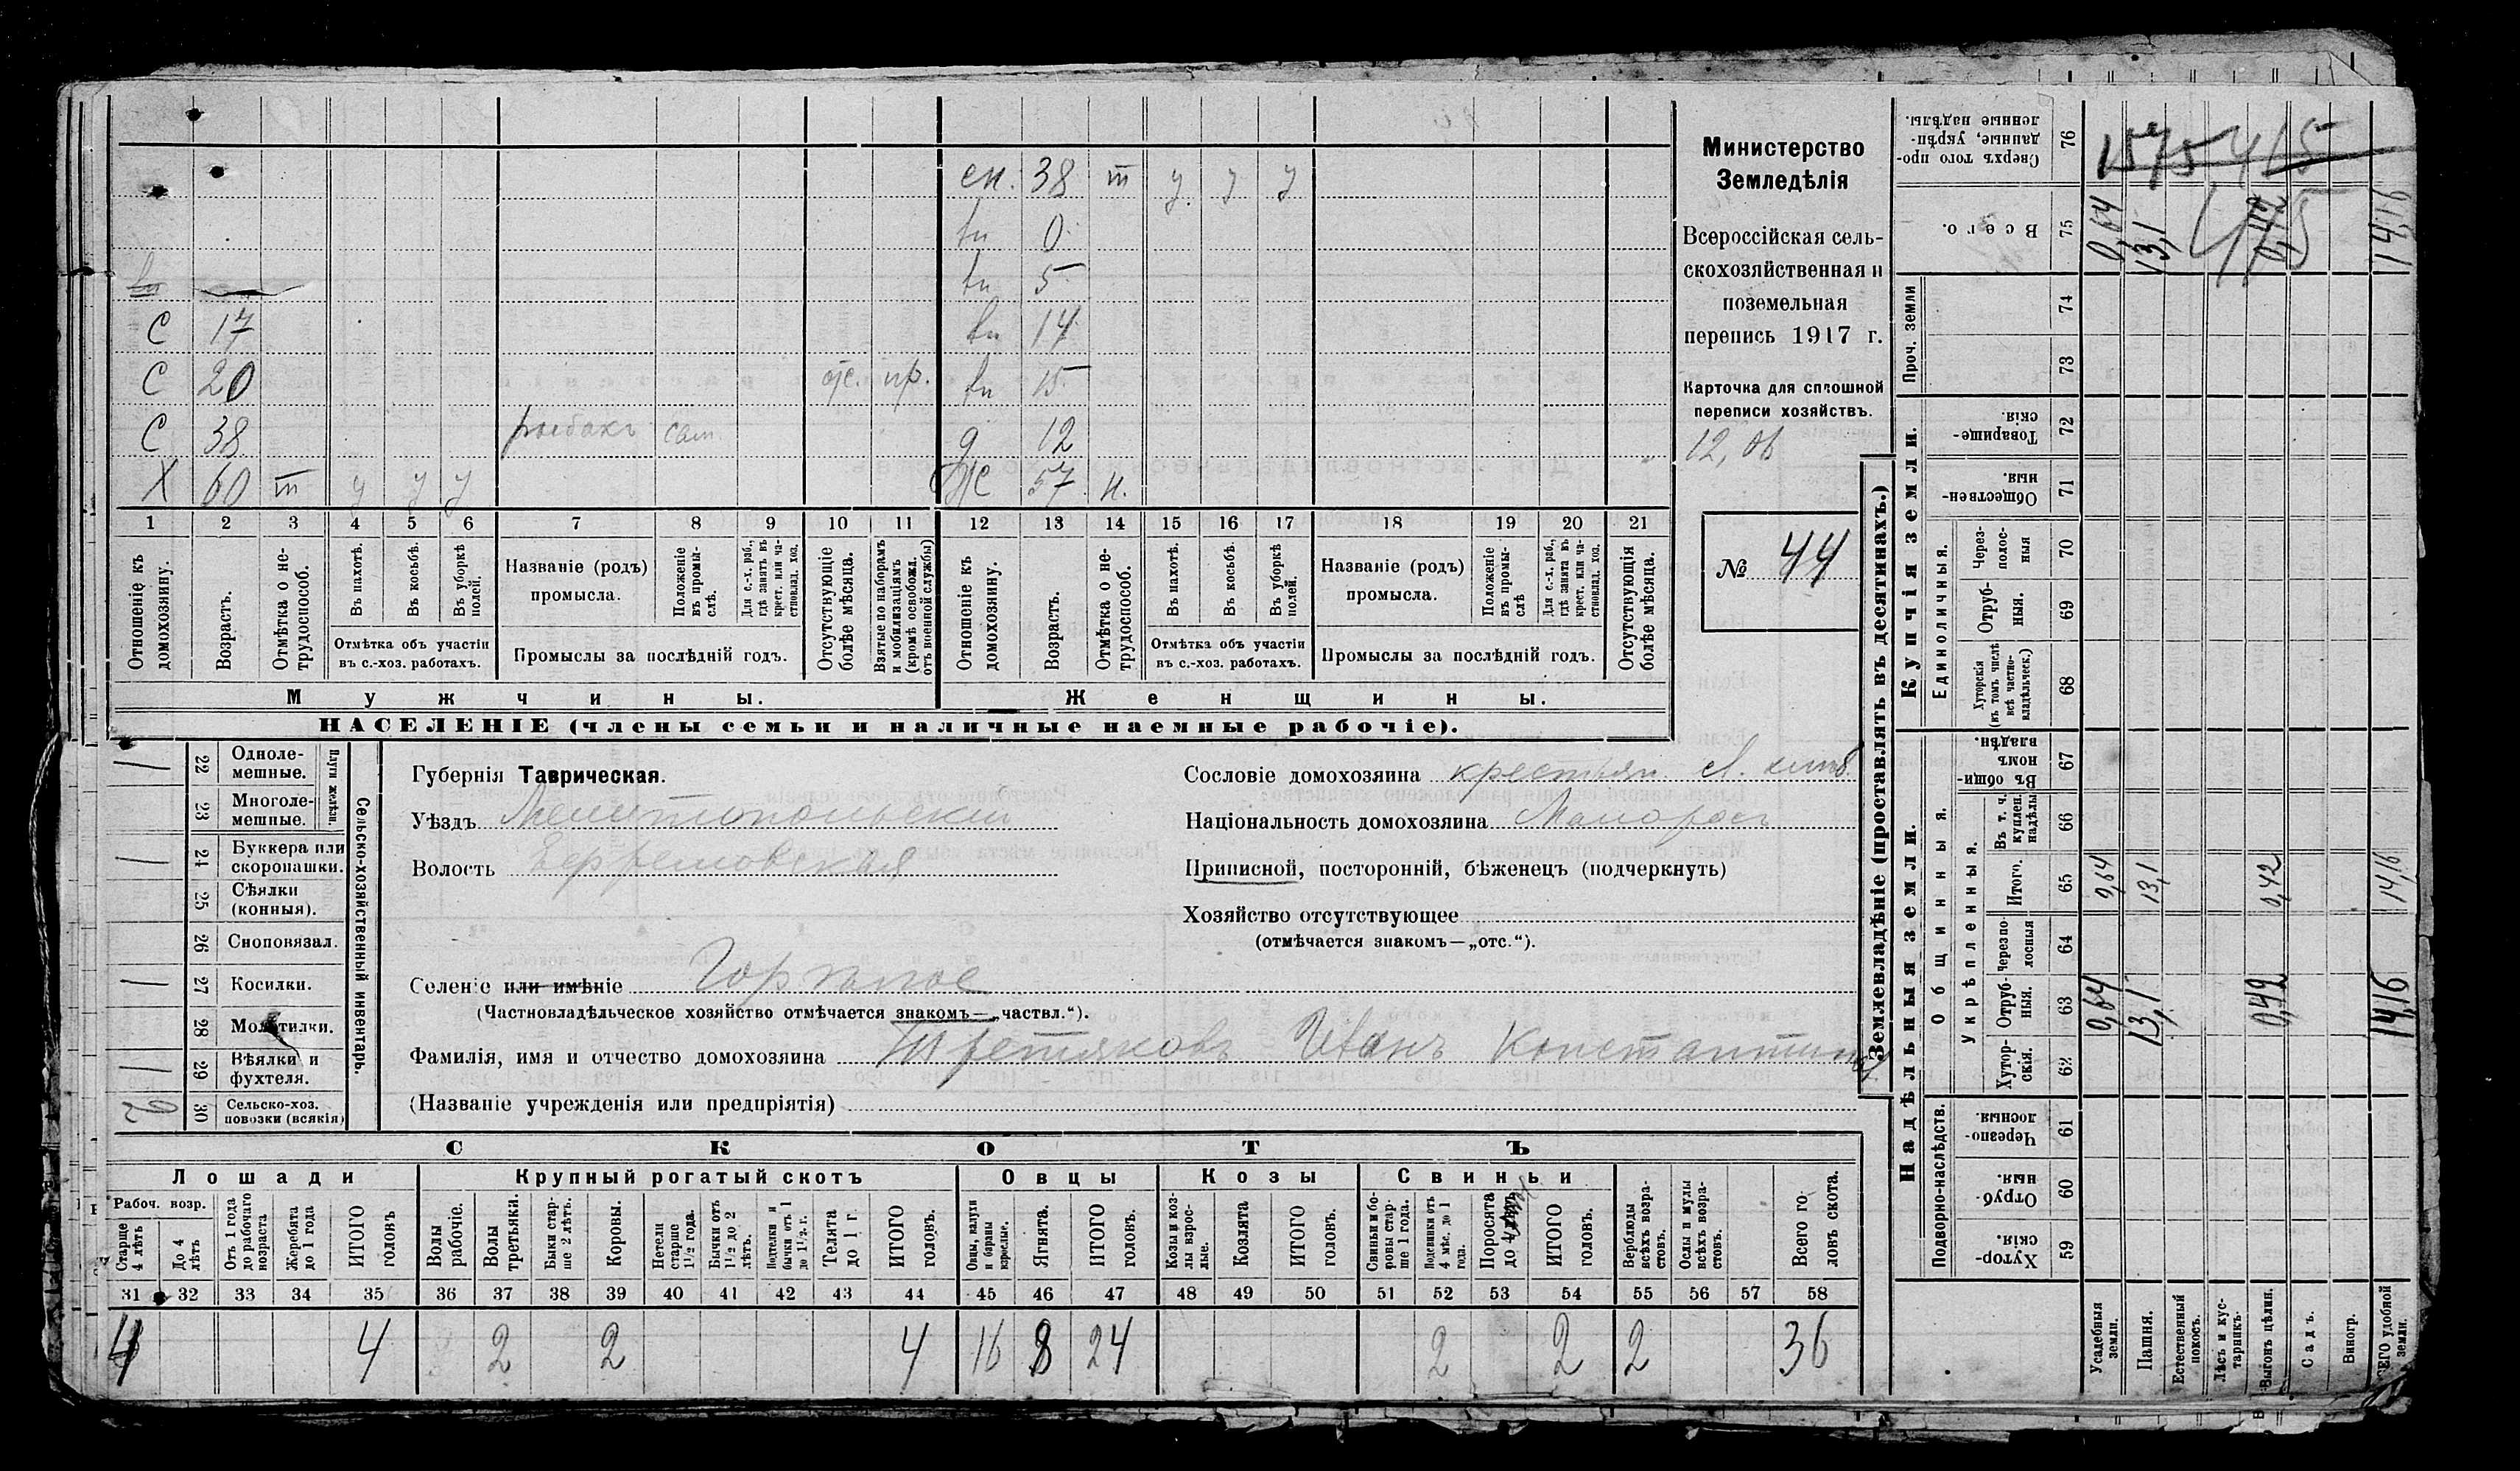 сн. 38 т у у у
вн 0
вн 5
С 17 вн 14
С 20 отс. пр. вн 15
С 38 рыбакъ сам. д 12
Х 60 т у у у Ж 57 н.
1 2 3 4 5 6 7 8 9 10 11 12 13 14 15 16 17 18 19 20 21
Отношеніе къ домохозяину.
Возрастъ.
Отмѣтка о не-трудоспособ.
Въ пахотѣ.
Въ косьбѣ.
Въ уборкѣ полей.
Отмѣтка объ участіи
въ с.-хоз. работахъ.
Названіе (родъ)
промысла.
Положеніе въ промы-слѣ.
Для с.-х. раб., гдѣ занятъ въ крест. или ча-стновлад. хоз.
Промыслы за послѣдній годъ.
Отсутствующіе болѣе мѣсяца.
Взятые по наборамъ и мобилизаціямъ (кромѣ освобожд. отъ военной службы)
Отношеніе къ домохозяину.
Возрастъ.
Отмѣтка о не-трудоспособ.
Въ пахотѣ.
Въ косьбѣ.
Въ уборкѣ полей.
Отмѣтка объ участіи
въ с.-хоз. работахъ.
Названіе (родъ)
промысла.
Положеніе въ промы-слѣ
Для с.-х. раб., гдѣ занята въ крест. или ча-стновлад. хоз.
Промыслы за послѣдній годъ.
Отсутствующія болѣе мѣсяца.
Мужчины.
Женщины.
НАСЕЛЕНІЕ (члены семьи и наличные наемные рабочіе).
Министерство
Земледѣлія
Всероссійская сель-
скохозяйственная и
поземельная
перепись 1917 г.
Карточка для сплошной
переписи хозяйствъ.
№ 44
Сельско-хозяйственный инвентарь.
Плуги желѣзн.
1 22 Одноле-мешные.
23 Многоле-мешные.
1 24 Буккера или скоропашки.
25 Сѣялки (конныя).
26 Сноповязал.
1 27 Косилки.
28 Молотилки.
1 29 Вѣялки и фухтеля.
2 30 Сельско-хоз. повозки (всякія)
Губернія Таврическая.
Уѣздъ Мелитопольскій
Волость Ефремовская
Селеніе или имѣніе Горѣлое
(Частновладѣльческое хозяйство отмѣчается знакомъ—„частвл.“).
Фамилія, имя и отчество домохозяина Третяковъ Иванъ Константин
(Названіе учрежденія или предпріятія)
Сословіе домохозяина крестьян
Національность домохозяина Малоросъ
Приписной, посторонній, бѣженецъ (подчеркнуть)
Хозяйство отсутствующее
(отмѣчается знакомъ—„отс.“).
СКОТЪ
Лошади Крупный рогатый скотъ Овцы Козы Свиньи
Рабоч. возр.
Старше 4 лѣтъ
До 4 лѣтъ
Отъ 1 года до рабочаго возраста
Жеребята до 1 года
ИТОГО головъ
Волы рабочіе.
Волы третьяки.
Быки стар-ше 2 лѣтъ.
Коровы.
Нетели старше 1½ года.
Бычки отъ 1½ до 2 лѣтъ.
Подтелки и бычки отъ 1 до 1½ г.
Телята до 1 г.
ИТОГО головъ.
Овцы, валухи и бараны взрослые.
Ягнята.
ИТОГО головъ.
Козы и коз-лы взрос-лые.
Козлята
ИТОГО головъ.
Свиньи и бо-ровы стар-ше 1 года.
Подсвинки отъ 4 мѣс. до 1 года.
Поросята до 4
ИТОГО головъ.
Верблюды всѣхъ возра-стовъ.
Ослы и мулы всѣхъ возра-стовъ.
Всего го-ловъ скота.
31 32 33 34 35 36 37 38 39 40 41 42 43 44 45 46 47 48 49 50 51 52 53 54 55 56 57 58
4 4 2 2 4 16 8 24 2 2 2 36
Землевладѣніе (проставлять въ десятинахъ.)
Надѣльныя земли.
Купчія земли.
Проч. земли
Подворно-наслѣдств.
Общинныя.
Укрѣпленныя.
Единоличныя.
Сверхъ того про-данные, укрѣп-ленные надѣлы. 76
Всего. 75 0,64 13,1 0,42 14,16
74
73
Товарище-скія. 72
Обществен-ныя. 71
Через-полос-ныя 70
Отруб-ныя. 69
Хуторскія (въ томъ числѣ всѣ частно-владѣльческ.) 68
Въ общин-номъ владѣн. 67
Въ т. ч. куплен. надѣлы 66
Итого. 65 0,64 13,1 0,42 14,16
Черезпо-лосныя 64
Отруб-ныя. 63 0,64 13,1 0,42 14,16
Хутор-скія. 62
Черезпо-лосныя 61
Отруб-ныя. 60
Хутор-скія. 59
Усадебныя земли.
Пашня.
Естественный покосъ.
Лѣсъ и кус-тарникъ.
Выгонъ цѣлин.
Садъ.
Виногр.
ЕГО удобной земли.